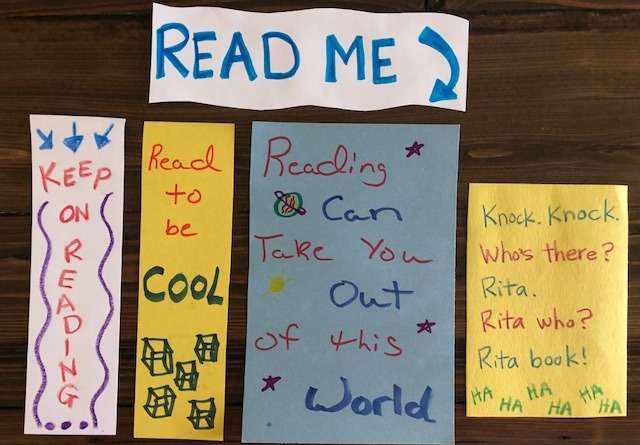 READ ME
KEEP
ON
READING
Read
to
be
COOL
Reading
Can
Take You
Out
of this
World
Knock. Knock.
Who's there?
Rita.
Rita who?
Rita book!
HA HA HA HA HA HA